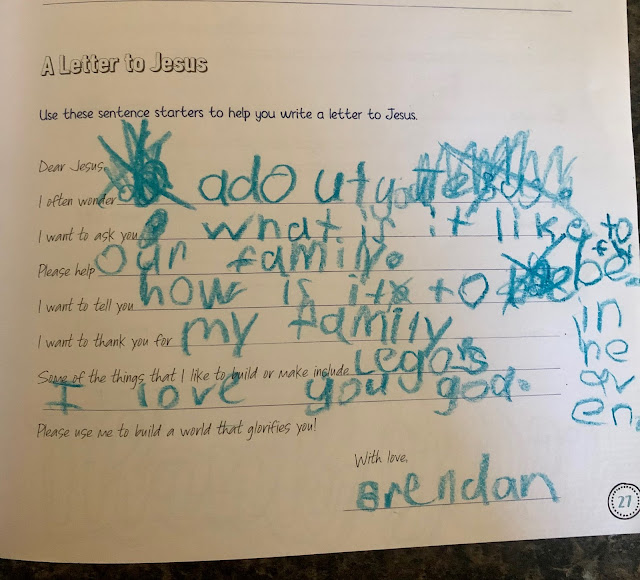 A Letter to Jesus
Use these sentence starters to help you write a letter to Jesus.
Dear Jesus,
I often wonder adout you
I want to ask you what is it like to
Please help our family.
I want to tell you how is it to be in heaven.
I want to thank you for my family
Some of the things that I like to build or make include Legos
I love you god.
Please use me to build a world that glorifies you!
With love,
Brendan
27